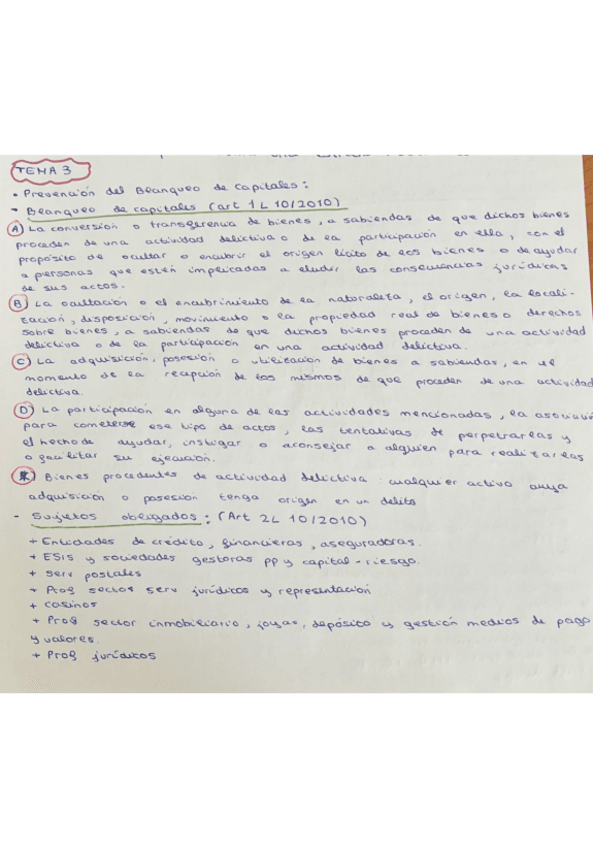 TEMA 3
• Prevención del Blanqueo de Capitales:
- Blanqueo de capitales (art 1 L 10/2010)
A) La conversión o transferencia de bienes, a sabiendas de que dichos bienes
proceden de una actividad delictiva o de la participación en ella, con el
propósito de ocultar o encubrir el origen lícito de los bienes o de ayudar
a personas que estén implicadas a eludir las consecuencias jurídicas
de sus actos.
B) La ocultación o el encubrimiento de la naturaleza, el origen, la locali-
zación, disposición, movimiento o la propiedad real de bienes o derechos
sobre bienes, a sabiendas de que dichos bienes proceden de una actividad
delictiva o de la participación en una actividad delictiva.
C) La adquisición, posesión o utilización de bienes a sabiendas, en el
momento de la recepción de los mismos de que proceden de una actividad
delictiva.
D) La participación en alguna de las actividades mencionadas, la asociación
para cometerse ese tipo de actos, las tentativas de perpetrarlas y
el hecho de ayudar, instigar o aconsejar a alguien para realizarlas
o facilitar su ejecución.
* Bienes procedentes de actividad delictiva: cualquier activo cuya
adquisición o posesión tenga origen en un delito
- Sujetos obligados: (Art 2 L 10/2010)
+ Entidades de crédito, financieras, aseguradoras.
+ ESIs y sociedades gestoras pp y capital-riesgo.
+ serv postales
+ Prof sector serv jurídicos y representación
+ casinos
+ Prof sector inmobiliario, joyas, depósito y gestión medios de pago
y valores.
+ Prof jurídicos